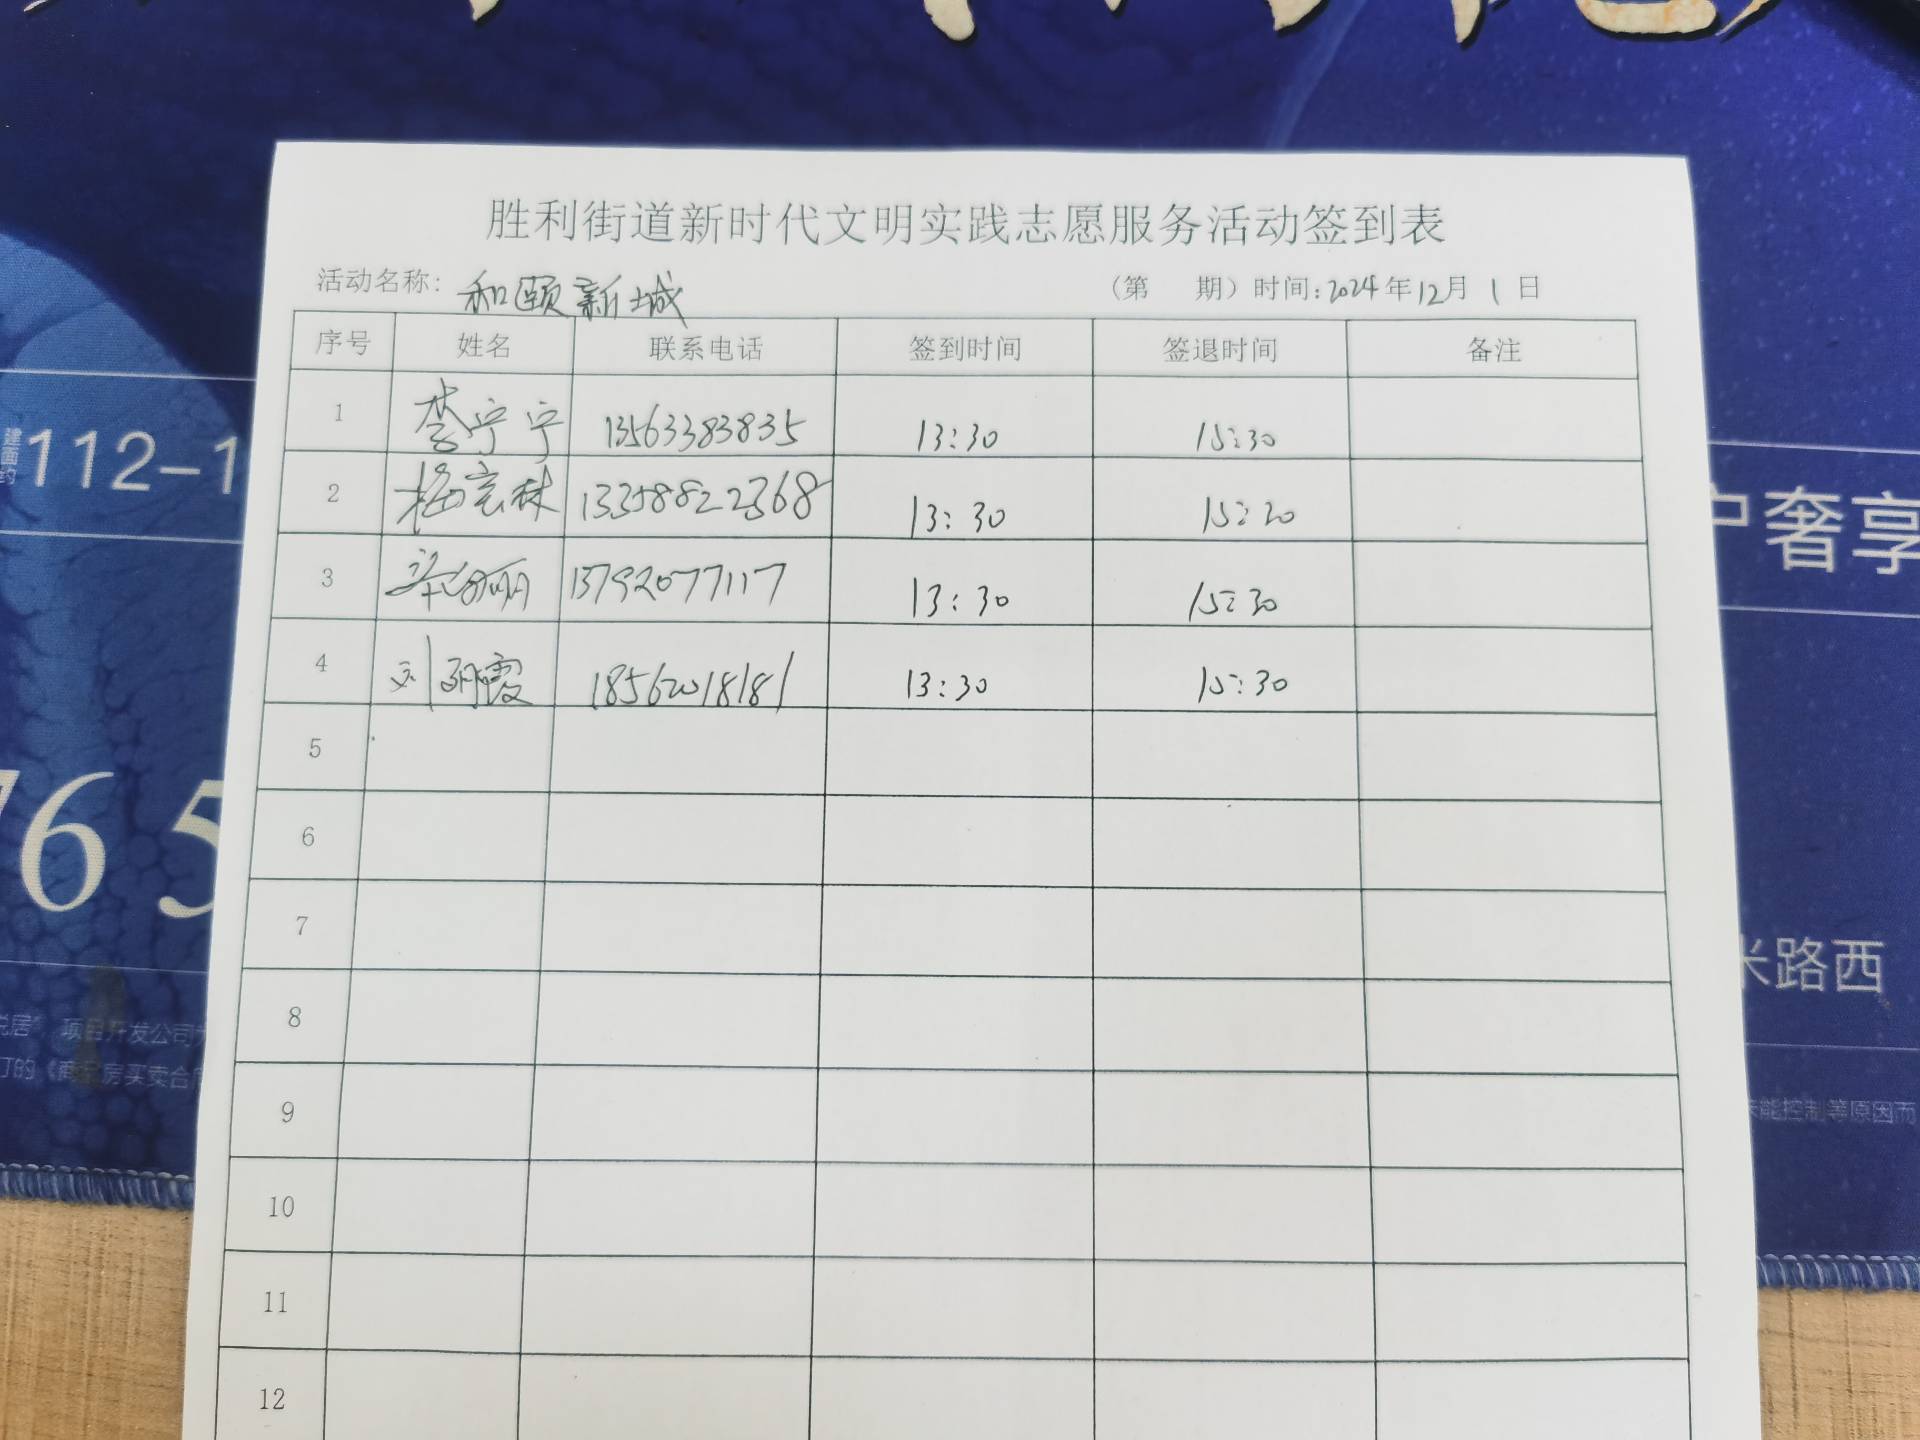 胜利街道新时代文明实践志愿服务活动签到表
活动名称：和颐新城 （第 期）时间：2024年12月1日
序号 姓名 联系电话 签到时间 签退时间 备注
1 李宁宁 13563383835 13:30 15:30
2 13358822368 13:30 15:30
3 13792077117 13:30 15:30
4 刘丽霞 18562018181 13:30 15:30
5
6
7
8
9
10
11
12
建面约112-1
户奢享
76 5
米路西
悦居” 项目开发公司为
订的《商品房买卖合同
未能控制等原因而